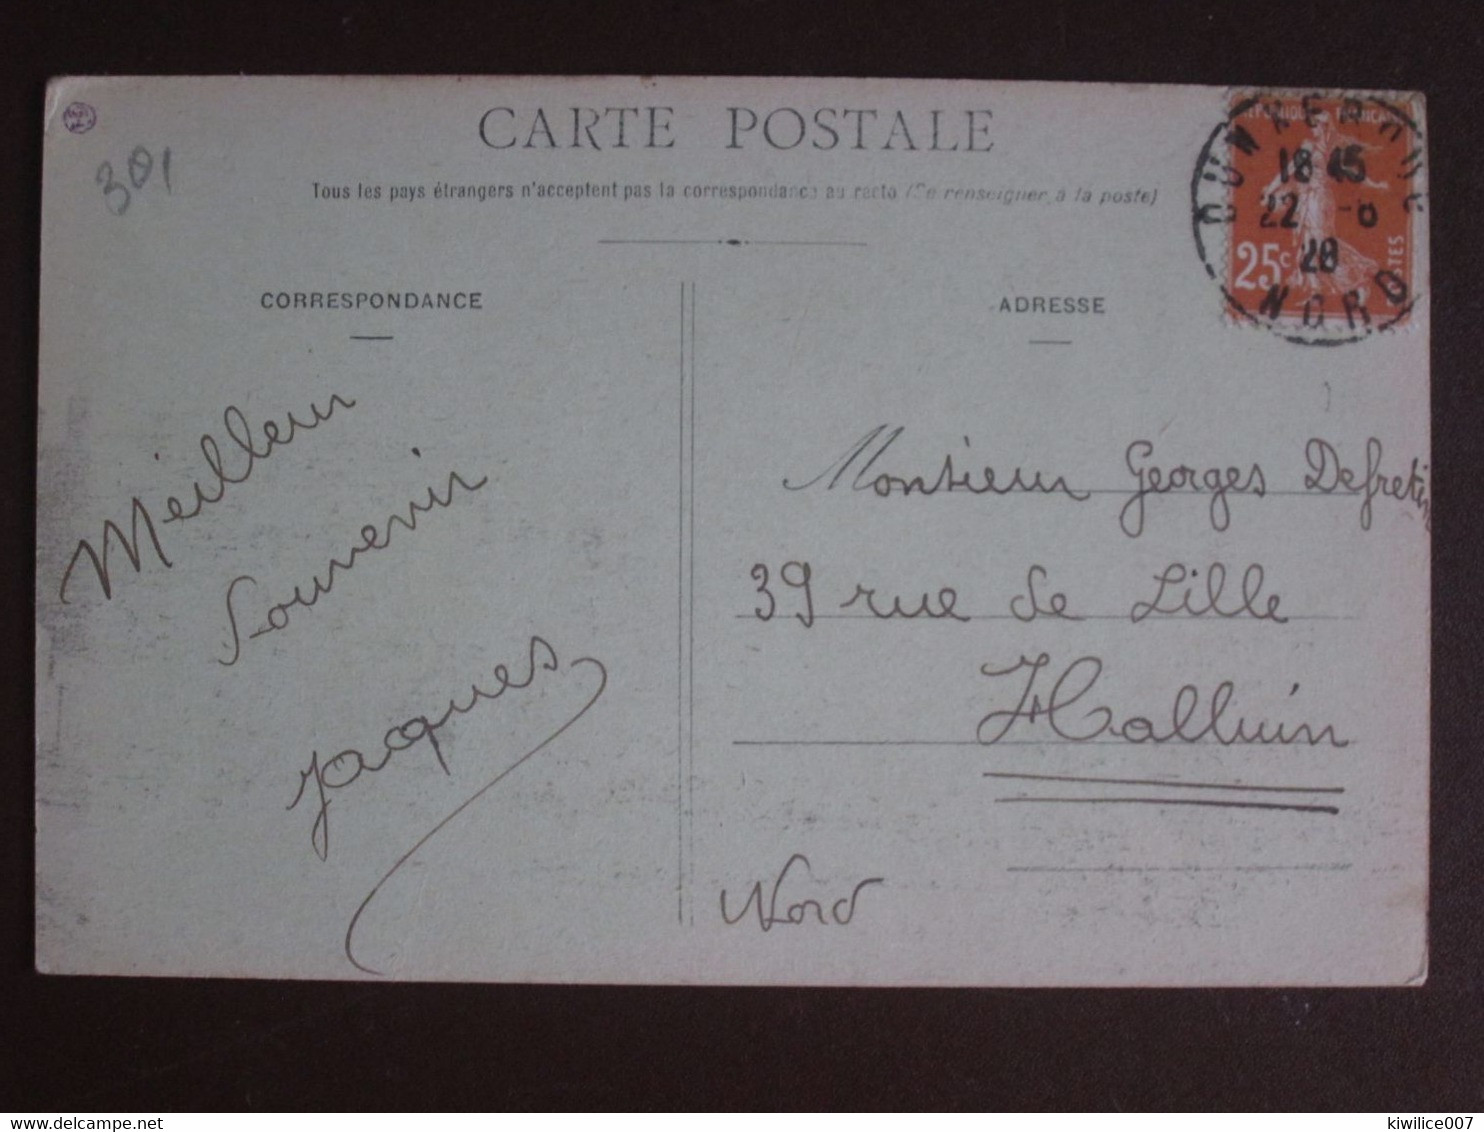 CARTE POSTALE
Tous les pays étrangers n'acceptent pas la correspondance au recto (Se renseigner à la poste)
301
CORRESPONDANCE
ADRESSE
DUNKERQUE
18 45
22 -6
28
NORD
25c
POSTES
Meilleur
Souvenir
Jacques
Monsieur Georges Defretin
39 rue de Lille
Halluin
Nord
kiwilice007